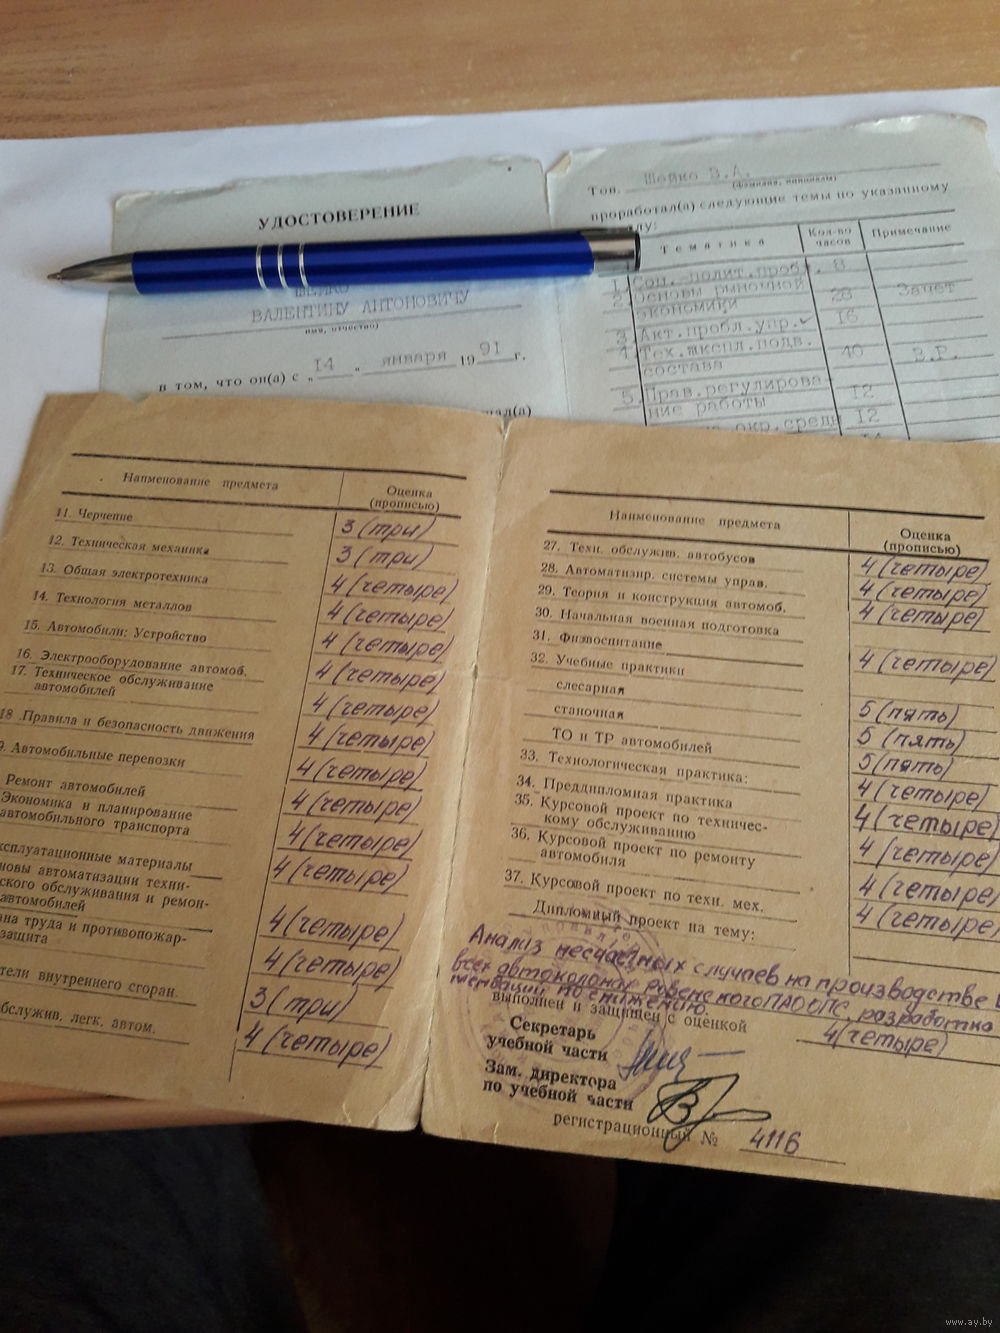 УДОСТОВЕРЕНИЕ
ШЕЙКО
ВАЛЕНТИНУ АНТОНОВИЧУ
имя, отчество)
в том, что он(а) с „ 14 " января 19 91 г.
Тов. Шейко В.А.
(фамилия, инициалы)
проработал(а) следующие темы по указанному
Тематика Кол-во часов Примечание
1. Соц.-полит.пробл. 8
2. Основы рыночной экономики 28 Зачет
3. Акт.пробл.упр. 16
4. Тех.экспл.подв. состава 40 В.Р.
5. Прав.регулирова-
ние работы 12
окр.среды 12
Наименование предмета Оценка (прописью)
11. Черчение 3 (три)
12. Техническая механика 3 (три)
13. Общая электротехника 4 (четыре)
14. Технология металлов 4 (четыре)
15. Автомобили: Устройство 4 (четыре)
16. Электрооборудование автомоб. 4 (четыре)
17. Техническое обслуживание
автомобилей 4 (четыре)
18. Правила и безопасность движения 4 (четыре)
9. Автомобильные перевозки 4 (четыре)
Ремонт автомобилей 4 (четыре)
Экономика и планирование
автомобильного транспорта 4 (четыре)
ксплуатационные материалы 4 (четыре)
новы автоматизации техни-
ского обслуживания и ремон-
автомобилей 4 (четыре)
ана труда и противопожар-
защита 4 (четыре)
тели внутреннего сгоран. 3 (три)
обслужив. легк. автом. 4 (четыре)
Наименование предмета Оценка (прописью)
27. Техн. обслужив. автобусов 4 (четыре)
28. Автоматизир. системы управ. 4 (четыре)
29. Теория и конструкция автомоб. 4 (четыре)
30. Начальная военная подготовка
31. Физвоспитание 4 (четыре)
32. Учебные практики
слесарная 5 (пять)
станочная 5 (пять)
ТО и ТР автомобилей 5 (пять)
33. Технологическая практика: 4 (четыре)
34. Преддипломная практика 4 (четыре)
35. Курсовой проект по техничес-
кому обслуживанию 4 (четыре)
36. Курсовой проект по ремонту
автомобиля 4 (четыре)
37. Курсовой проект по техн. мех. 4 (четыре)
Дипломный проект на тему:
Анализ несчастных случаев на производстве
всех автоколонах Ровенского ПАООПС, разработка
по снижению.
выполнен и защищен с оценкой 4 (четыре)
Секретарь
учебной части
Зам. директора
по учебной части
регистрационный № 4116
www.ay.by